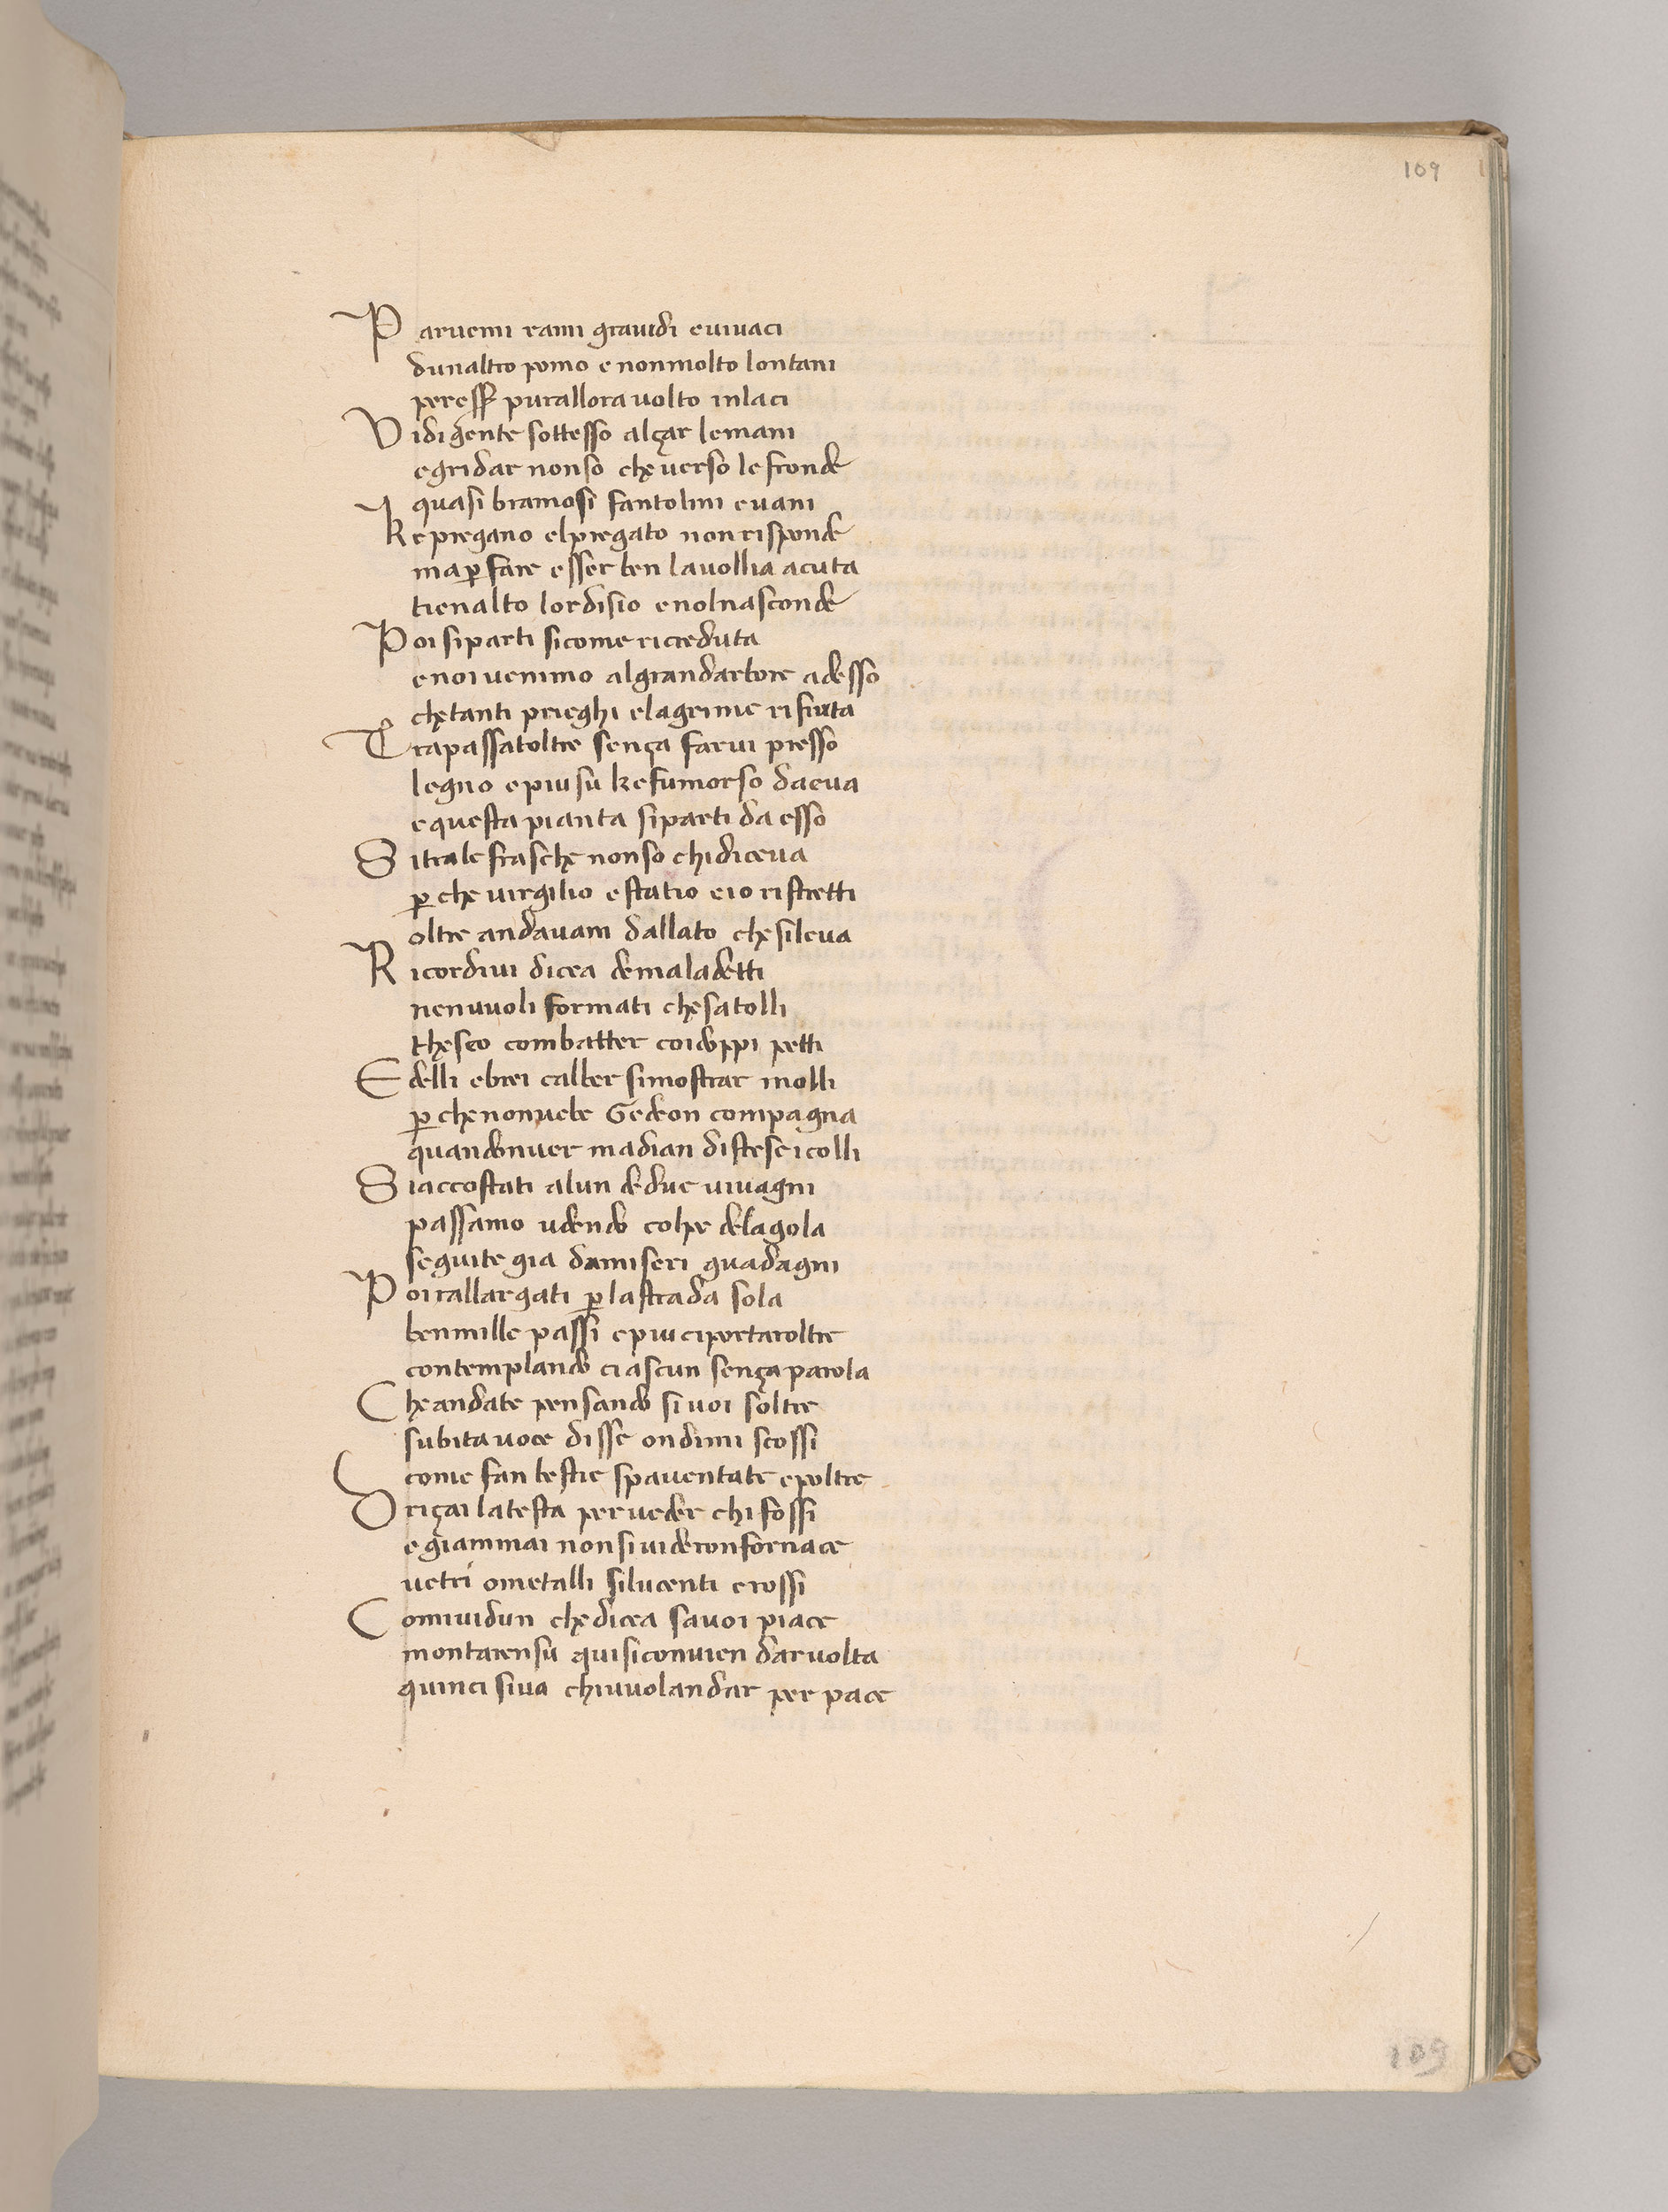 109
Parvemi rami gravidi e vivaci
dunaltro pomo e nonmolto lontani
peresser purallora volto inlaci
Vidi gente sottesso alçar lemani
egridar nonso che verso lefronde
quasi bramosi fantolini evani
Kepregano elpregato non risponde
map fare esser ben lavollia acuta
tienalto lordisio enolnasconde
Poi siparti sicome ricreduta
enoi venimmo algrandarbore adesso
chetanti prieghi elagrime rifiuta
Trapassatoltre sença farvi presso
legno epiu su kefumorso daeva
equesta pianta siparti da esso
Sitralefrasche nonso chidiceva
p che virgilio estatio eio ristretti
oltre andavam dallato chesileva
Ricordivi dicea demaladetti
nenuvoli formati chesatolli
theseo combatter coidoppi petti
Edelli ebrei calber simostrar molli
p chenonvebe Gedeon compagna
quandonver madian discese icolli
Siaccostati alun dedue vivagni
passamo udendo colpe delagola
seguite gia damiseri guadagni
Poi rallargati p lastrada sola
benmille passi epiu ciportaroltre
contemplando ciascun sença parola
Cheandate pensando si voi soltre
subitavoce disse ondimi scossi
come fan bestie spaventate epoltre
Driçai latesta perveder chi fossi
egiammai nonsivideronfornace
vetri ometalli silucenti erossi
Comividun chedicea savoi piace
montarensu quisiconvien darvolta
quinci siva chivuolandar per pace
109